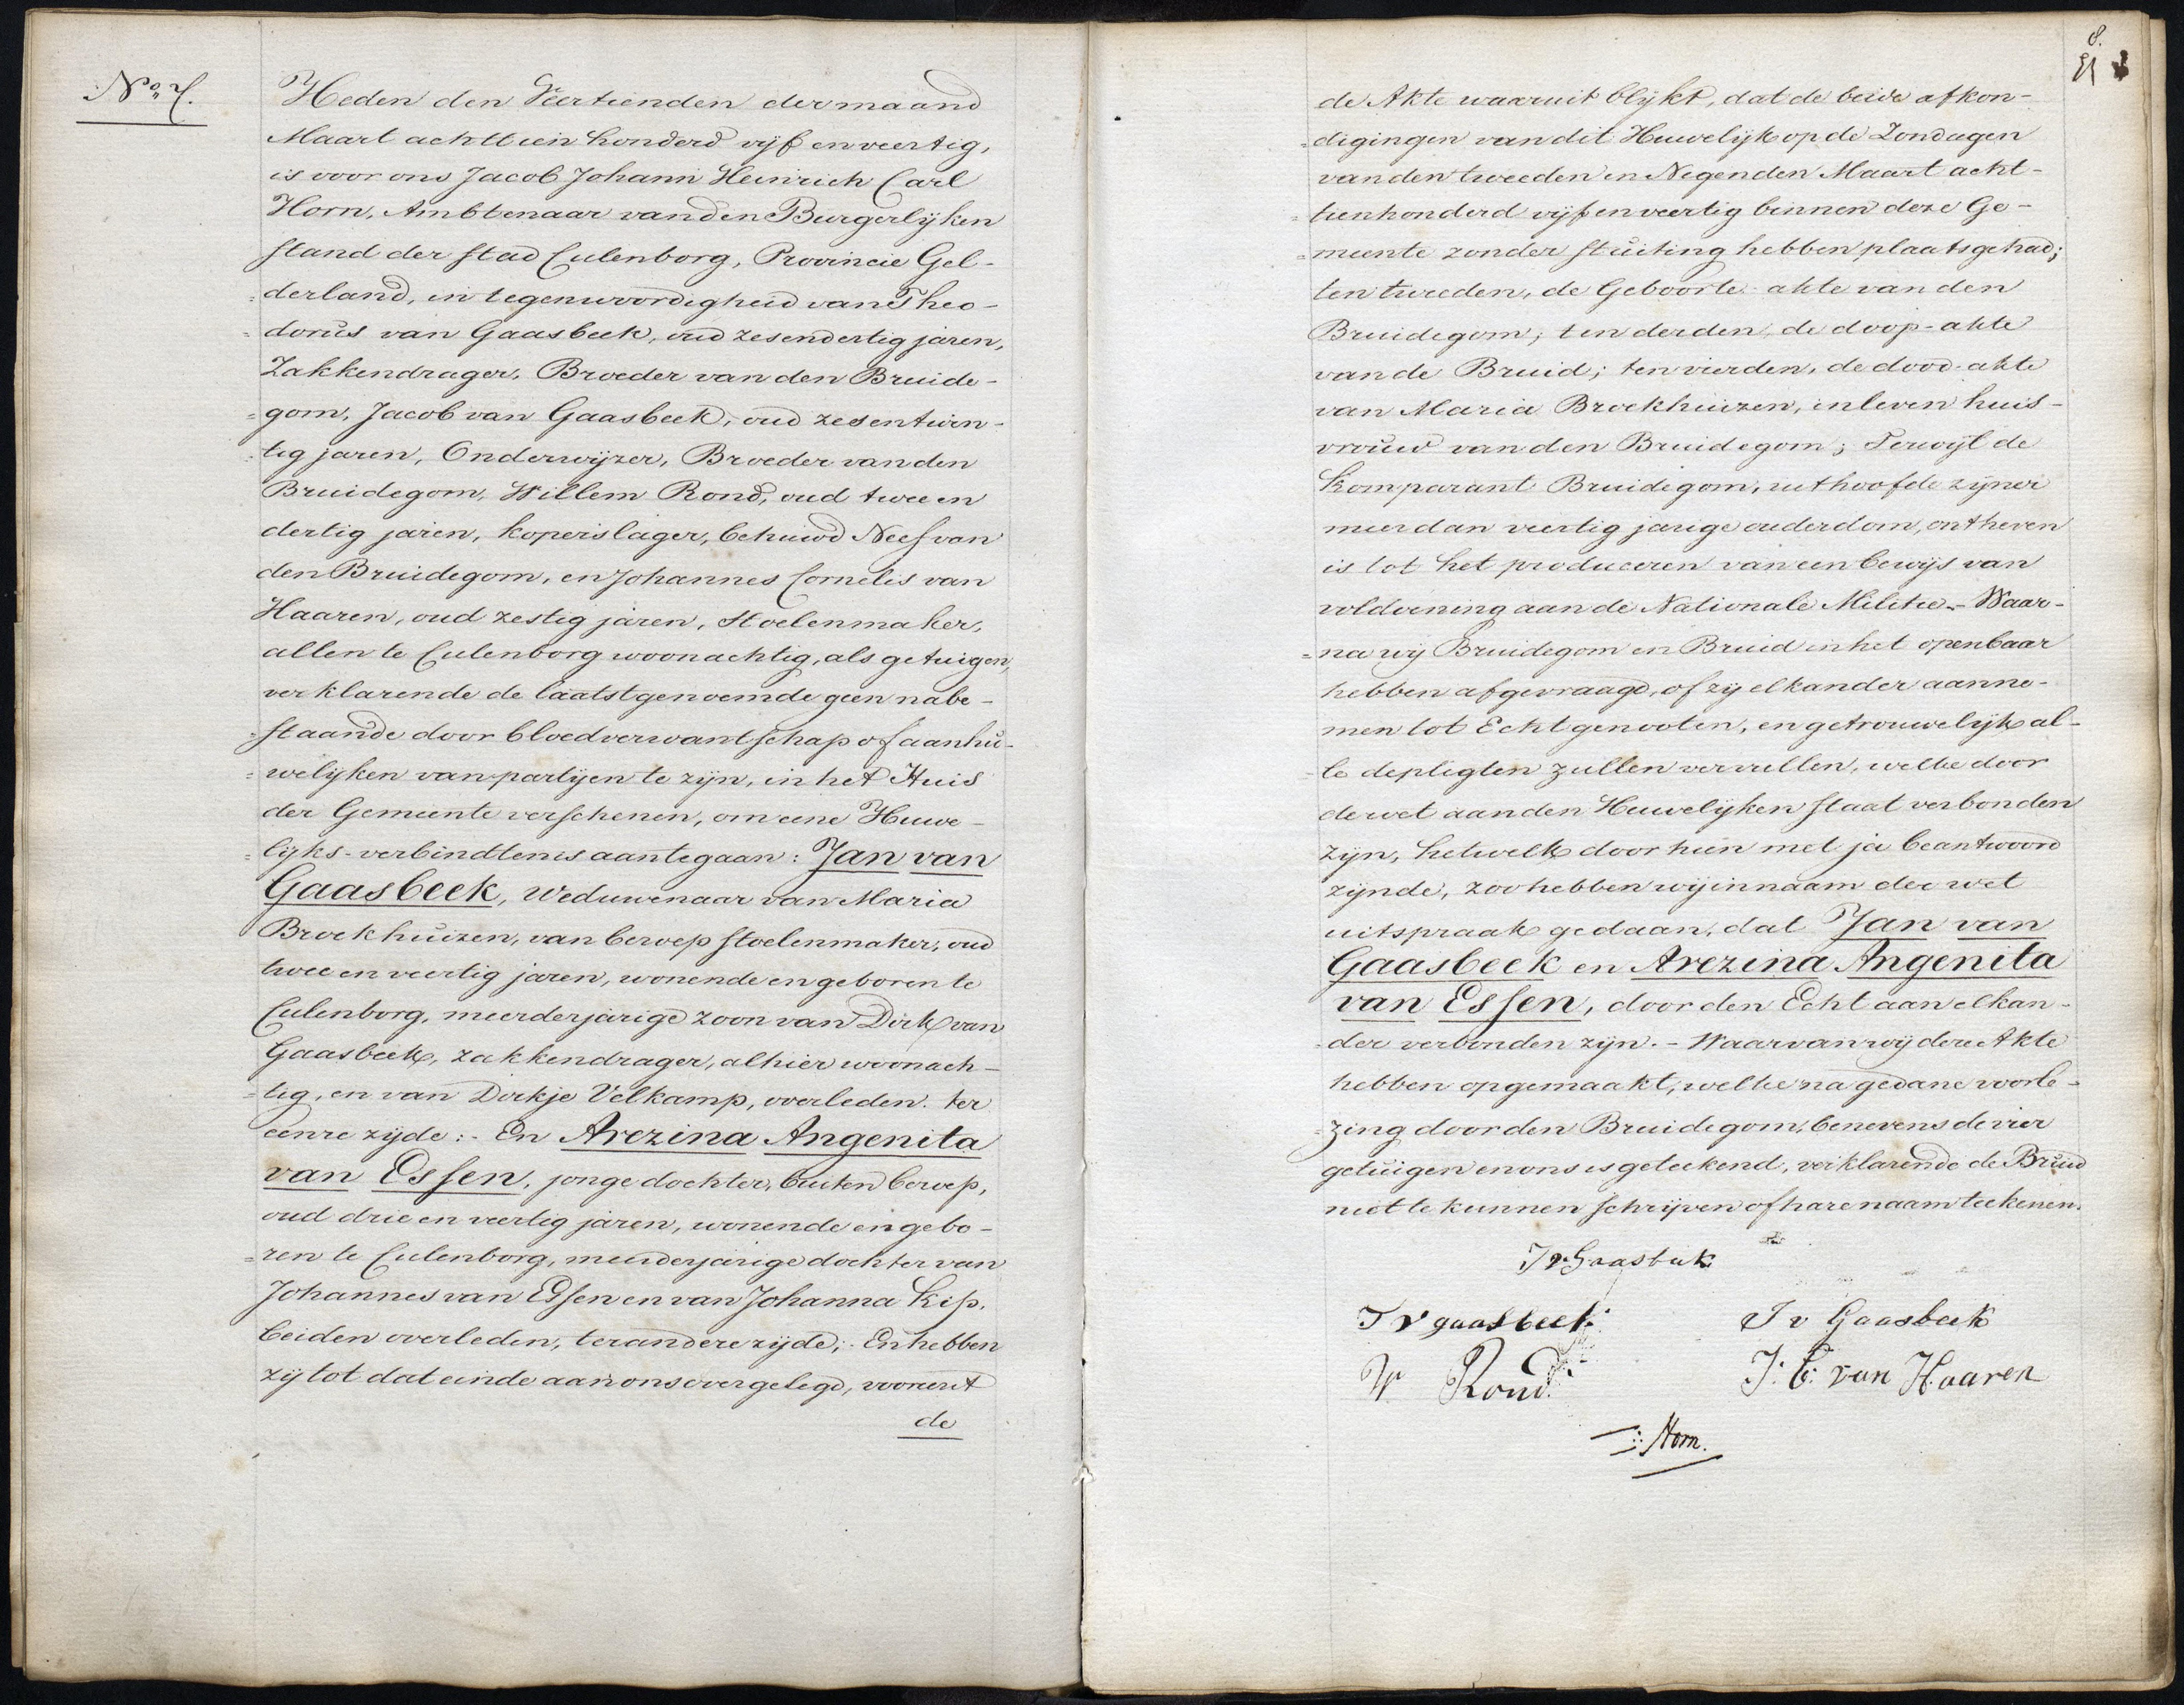 No. 7.
Heden den Veertienden der maand
Maart achttien honderd vijf en veertig,
is voor ons Jacob Johann Heinrich Carl
Horn, Ambtenaar van den Burgerlijken
stand der stad Culenborg, Provincie Gel-
=derland, in tegenwoordigheid van Theo-
=dorus van Gaasbeek, oud zesendertig jaren,
Zakkendrager, Broeder van den Bruide-
=gom, Jacob van Gaasbeek, oud zesentwin-
=tig jaren, Onderwijzer, Broeder van den
Bruidegom, Willem Rond, oud twee en
dertig jaren, koperslager, behuwd Neef van
den Bruidegom, en Johannes Cornelis van
Haaren, oud zestig jaren, Stoelenmaker,
allen te Culenborg woonachtig, als getuigen,
verklarende de laatstgenoemde geen nabe-
=staande door bloedverwantschap of aanhu-
=welijken van partijen te zijn, in het Huis
der Gemeente verschenen, om eene Huwe-
=lijks-verbindtenis aantegaan: Jan van
Gaasbeek, Weduwenaar van Maria
Broekhuizen, van beroep stoelenmaker, oud
twee en veertig jaren, wonende en geboren te
Culenborg, meerderjarige zoon van Dirk van
Gaasbeek, zakkendrager, alhier woonach-
=tig, en van Dirkje Velkamp, overleden. ter
eenre zijde:- En Arezina Angenita
van Essen, jonge dochter, buiten beroep,
oud drie en veertig jaren, wonende en gebo-
=ren te Culenborg, meerderjarige dochter van
Johannes van Essen en van Johanna Kip,
beiden overleden, ter andere zijde;- En hebben
zij tot dat einde aan ons overgelegd, vooreerst
de
8.
de Akte waaruit blijkt, dat de beide afkon-
=digingen van dit Huwelijk op de Zondagen
van den tweeden en Negenden Maart acht-
=tienhonderd vijf en veertig binnen deze Ge-
=meente zonder stuiting hebben plaatsgehad;
ten tweeden, de Geboorte-akte van den
Bruidegom; ten derden, de doop-akte
van de Bruid; ten vierden, de dood-akte
van Maria Broekhuizen, in leven huis-
vrouw van den Bruidegom; Terwijl de
Komparant Bruidegom, uit hoofde zijner
meer dan veertig jarige ouderdom, ontheven
is tot het produceren van een bewijs van
voldoening aan de Nationale Militie.- Waar-
=na wij Bruidegom en Bruid in het openbaar
hebben afgevraagd, of zij elkander aanne-
men tot Echtgenooten, en getrouwelijk al-
=le de pligten zullen vervullen, welke door
de wet aan den Huwelijken staat verbonden
zijn, hetwelk door hun met ja beantwoord
zijnde, zoo hebben wij in naam der wet
uitspraak gedaan, dat Jan van
Gaasbeek en Arezina Angenita
van Essen, door den Echt aan elkan-
=der verbonden zijn.- Waarvan wij deze Akte
hebben opgemaakt, welke na gedane voorle-
=zing door den Bruidegom, benevens de vier
getuigen en ons is geteekend, verklarende de Bruid
niet te kunnen schrijven of hare naam teekenen.
J v Gaasbeek
T v gaasbeek
J v Gaasbeek
W Rond.
J: C: van Haaren
Horn.